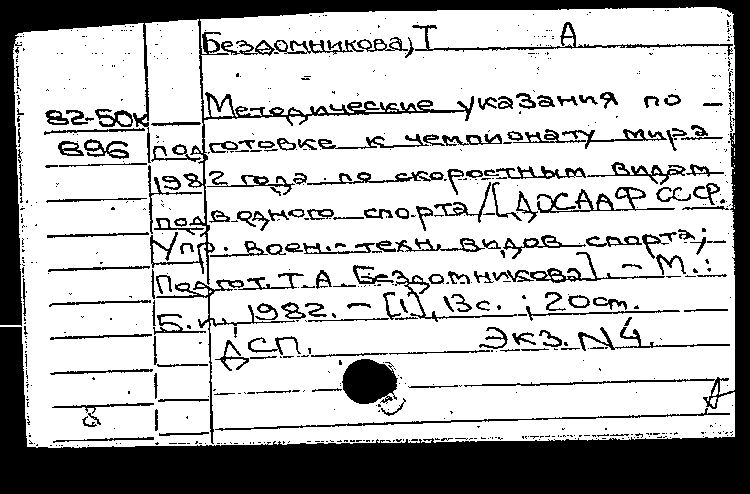 Бездомникова, Т А
82-50к Методические указания по –
696 подготовке к чемпионату мира
1982 года по скоростным видам
подводного спорта / [ДОСААФ СССР.
Упр. воен.-техн. видов спорта;
Подгот. Т. А. Бездомникова]. – М.:
Б.и., 1982. – [1], 13 с.; 20 см.
ДСП. Экз. N 4.